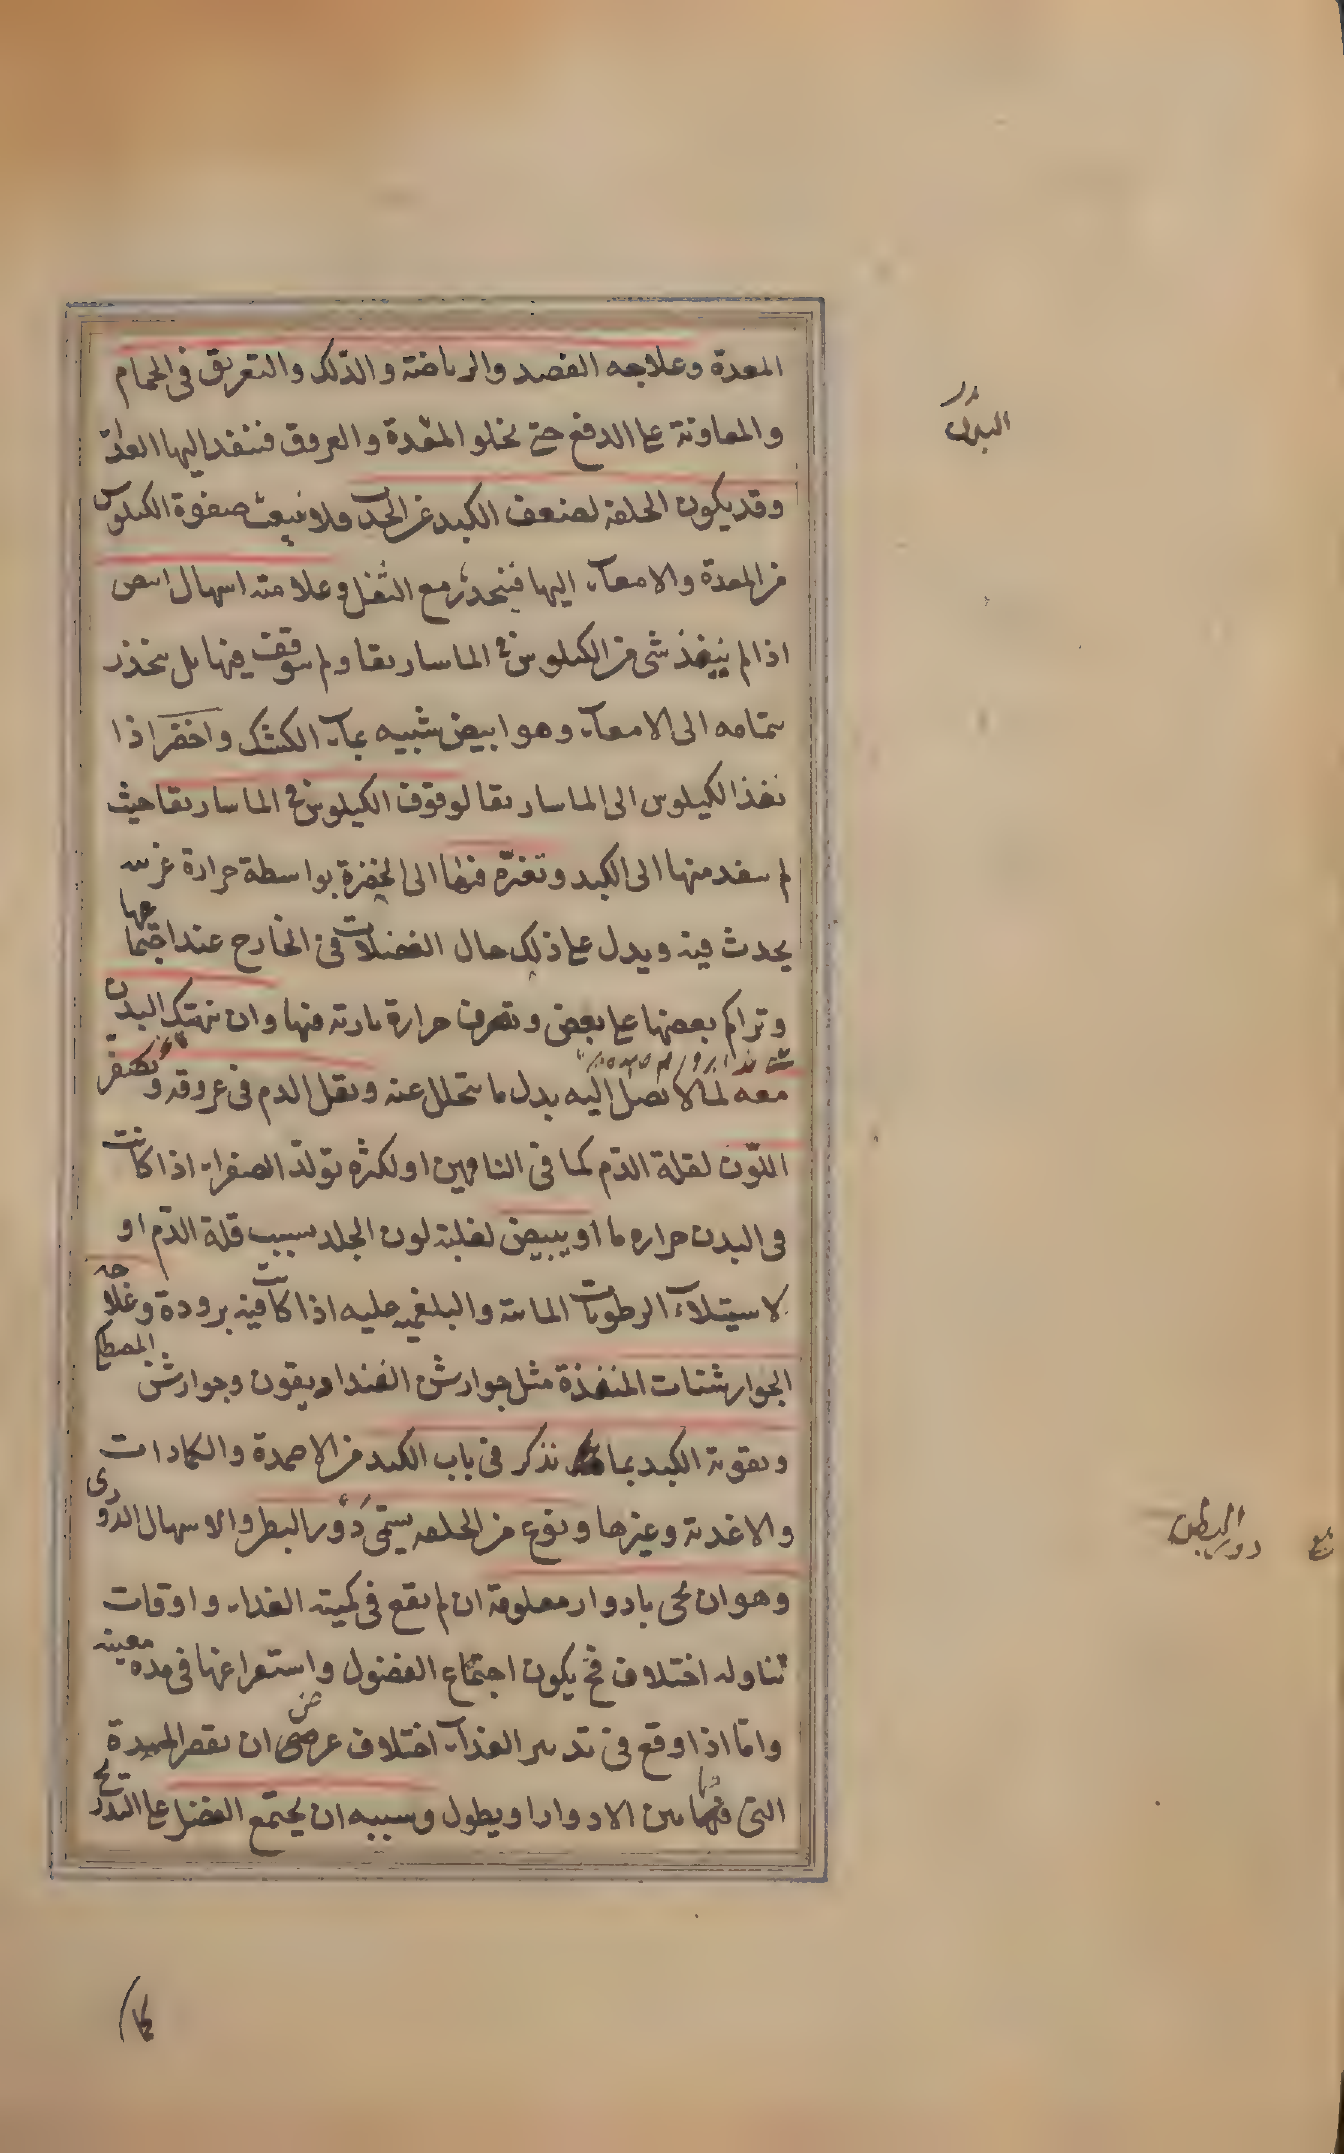 المعدة وعلاجه الفصد والرياضة والدّلك والتعريق فى الحمام
والمعاونة على الدفع حتى يخلو المعدة والعروق فتنفد اليها الغذآ
وقد يكون الخلفة لضعف الكبد عن الجذب ولا ينبعث صفوة الكيلوس
من المعدة والامعآء اليها فينحدر مع الثفل وعلامته اسهال ابيض
اذا لم ينفذ شى من الكيلوس فى الماساريقا ولم يتوقف فيها بل ينحذر
بتمامه الى الامعآء وهو ابيض شبيه بمآء الكشك واخضر اذا
نفذ الكيلوس الى الماساريقا لوقوف الكيلوس فى الماساريقا حيث
لم ينفد منها الى الكبد وتغيّره فيها الى الخضرة بواسطة حرارة غريبة
يحدث فيه ويدل على ذلك حال الفضلات فى الخارج عند اجتماعها
وتراكم بعضها على بعض وتصرف حرارة نارية فيها وان ينهتك البدن
معه لما لا يصل اليه بدل ما يتحلل عنه ويقل الدم فى عروقه ويصفر
اللّون لقلة الدّم كما فى الناقهين او لكثرة تولّد الصفراء اذا كانت
فى البدن حراره ما او يبيض لغلبة لون الجلد بسبب قلة الدّم او
لاستيلآء الرطوبات المائية والبلغمية عليه اذا كانت فيه برودة وعلاجه
الجوارشنات المنفذة مثل جوارش الفنداديقون وجوارش المصطكى
وتقوية الكبد بما نذكر فى باب الكبد من الاضمدة والكمادات
والاغدية وغيرها ونوع من الخلفة يسمّى دَوْر البطن والاسهال الدّورى
وهو ان يجى بادوار معلومة ان لم يقع فى كمية الغداء واوقات
تناوله اختلاف فح يكون اجتماع الفضول واستفراغها فى مدة معينه
وامّا اذا وقع فى تدبير الغذآء اختلاف عرض ان يقصر المدة
التى فيما بين الادوار او يطول وسببه ان يجتمع الفضل على التدريج
البدن
دور البطن